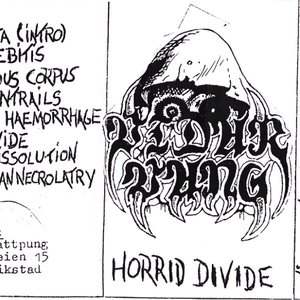 TA (INTRO)
EBITIS
OUS CORPUS
NTRAILS
HAEMORRHAGE
IDE
SSOLUTION
AN NECROLATRY
ttpung
eien 15
ikstad
HORRID DIVIDE